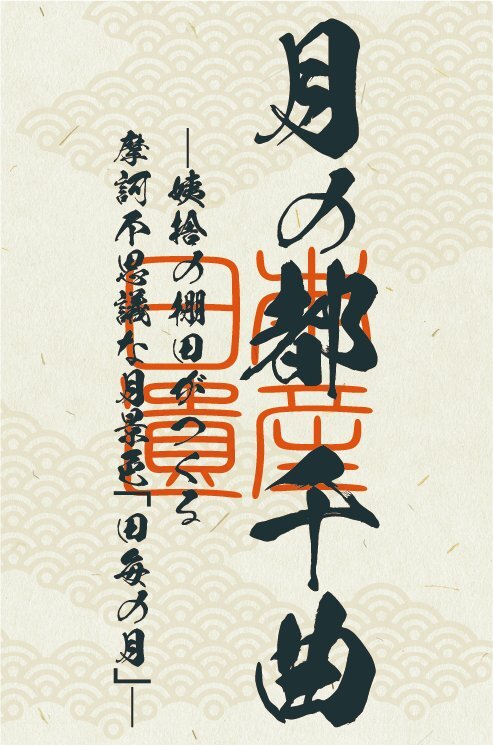 月の都 千曲
―姨捨の棚田がつくる
摩訶不思議な月景色「田毎の月」―